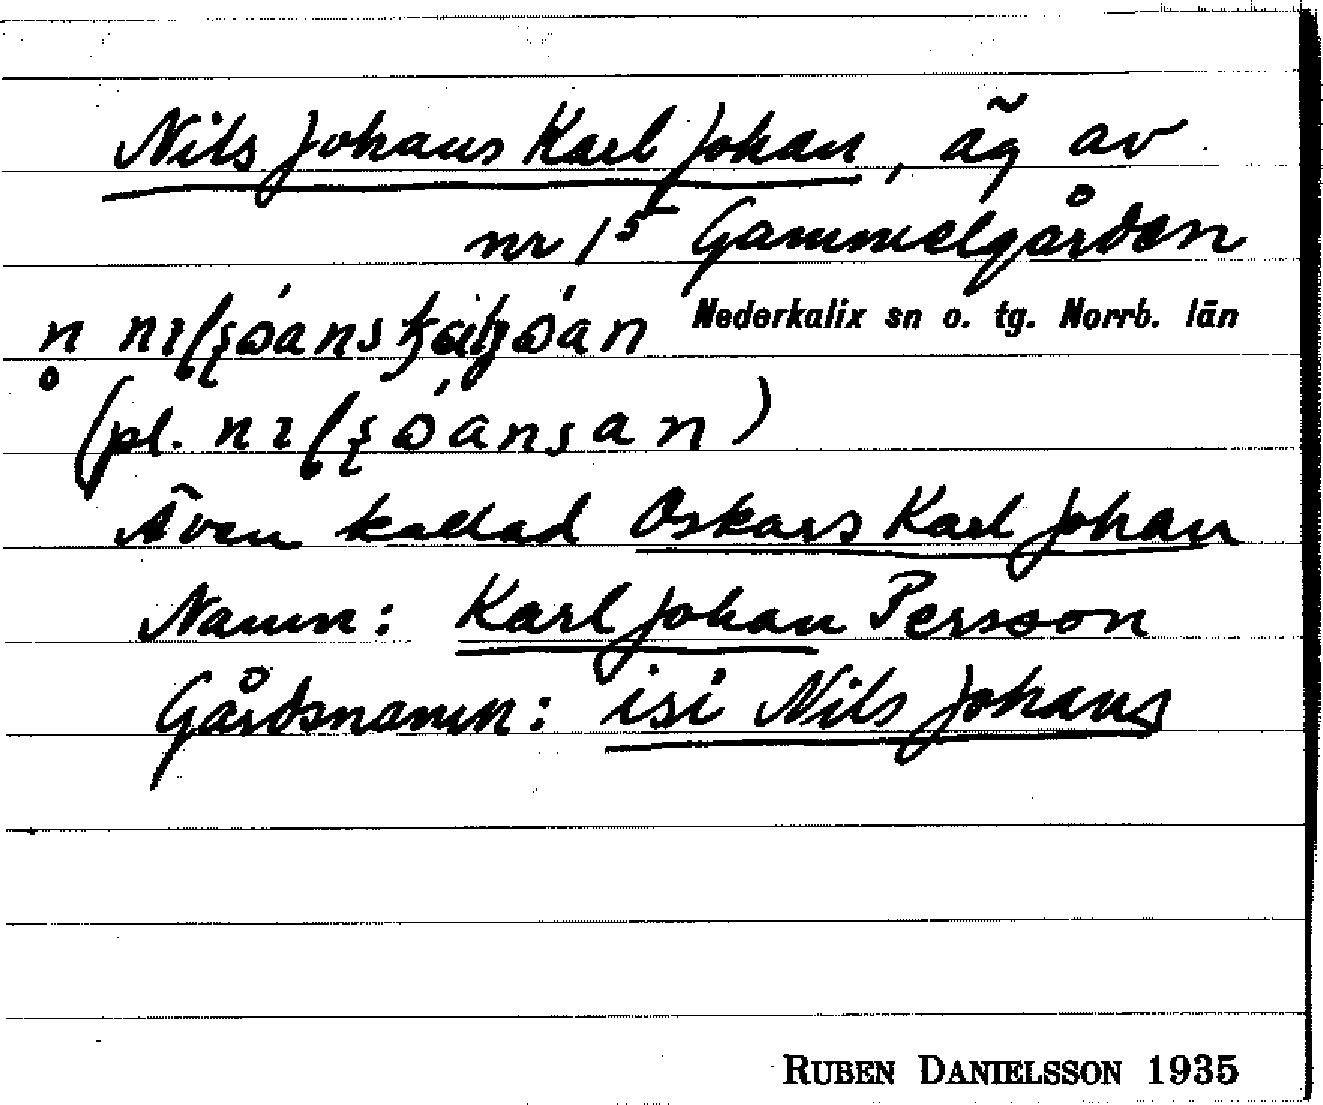 Nils Johans Karl Johan, äg av
nr 15 Gammelgården
Nederkalix sn o. tg. Norrb. län
(pl.
Även kallad Oskars Karl Johan
Namn: Karl Johan Persson
Gårdsnamn: isi Nils Johans
RUBEN DANIELSSON 1935